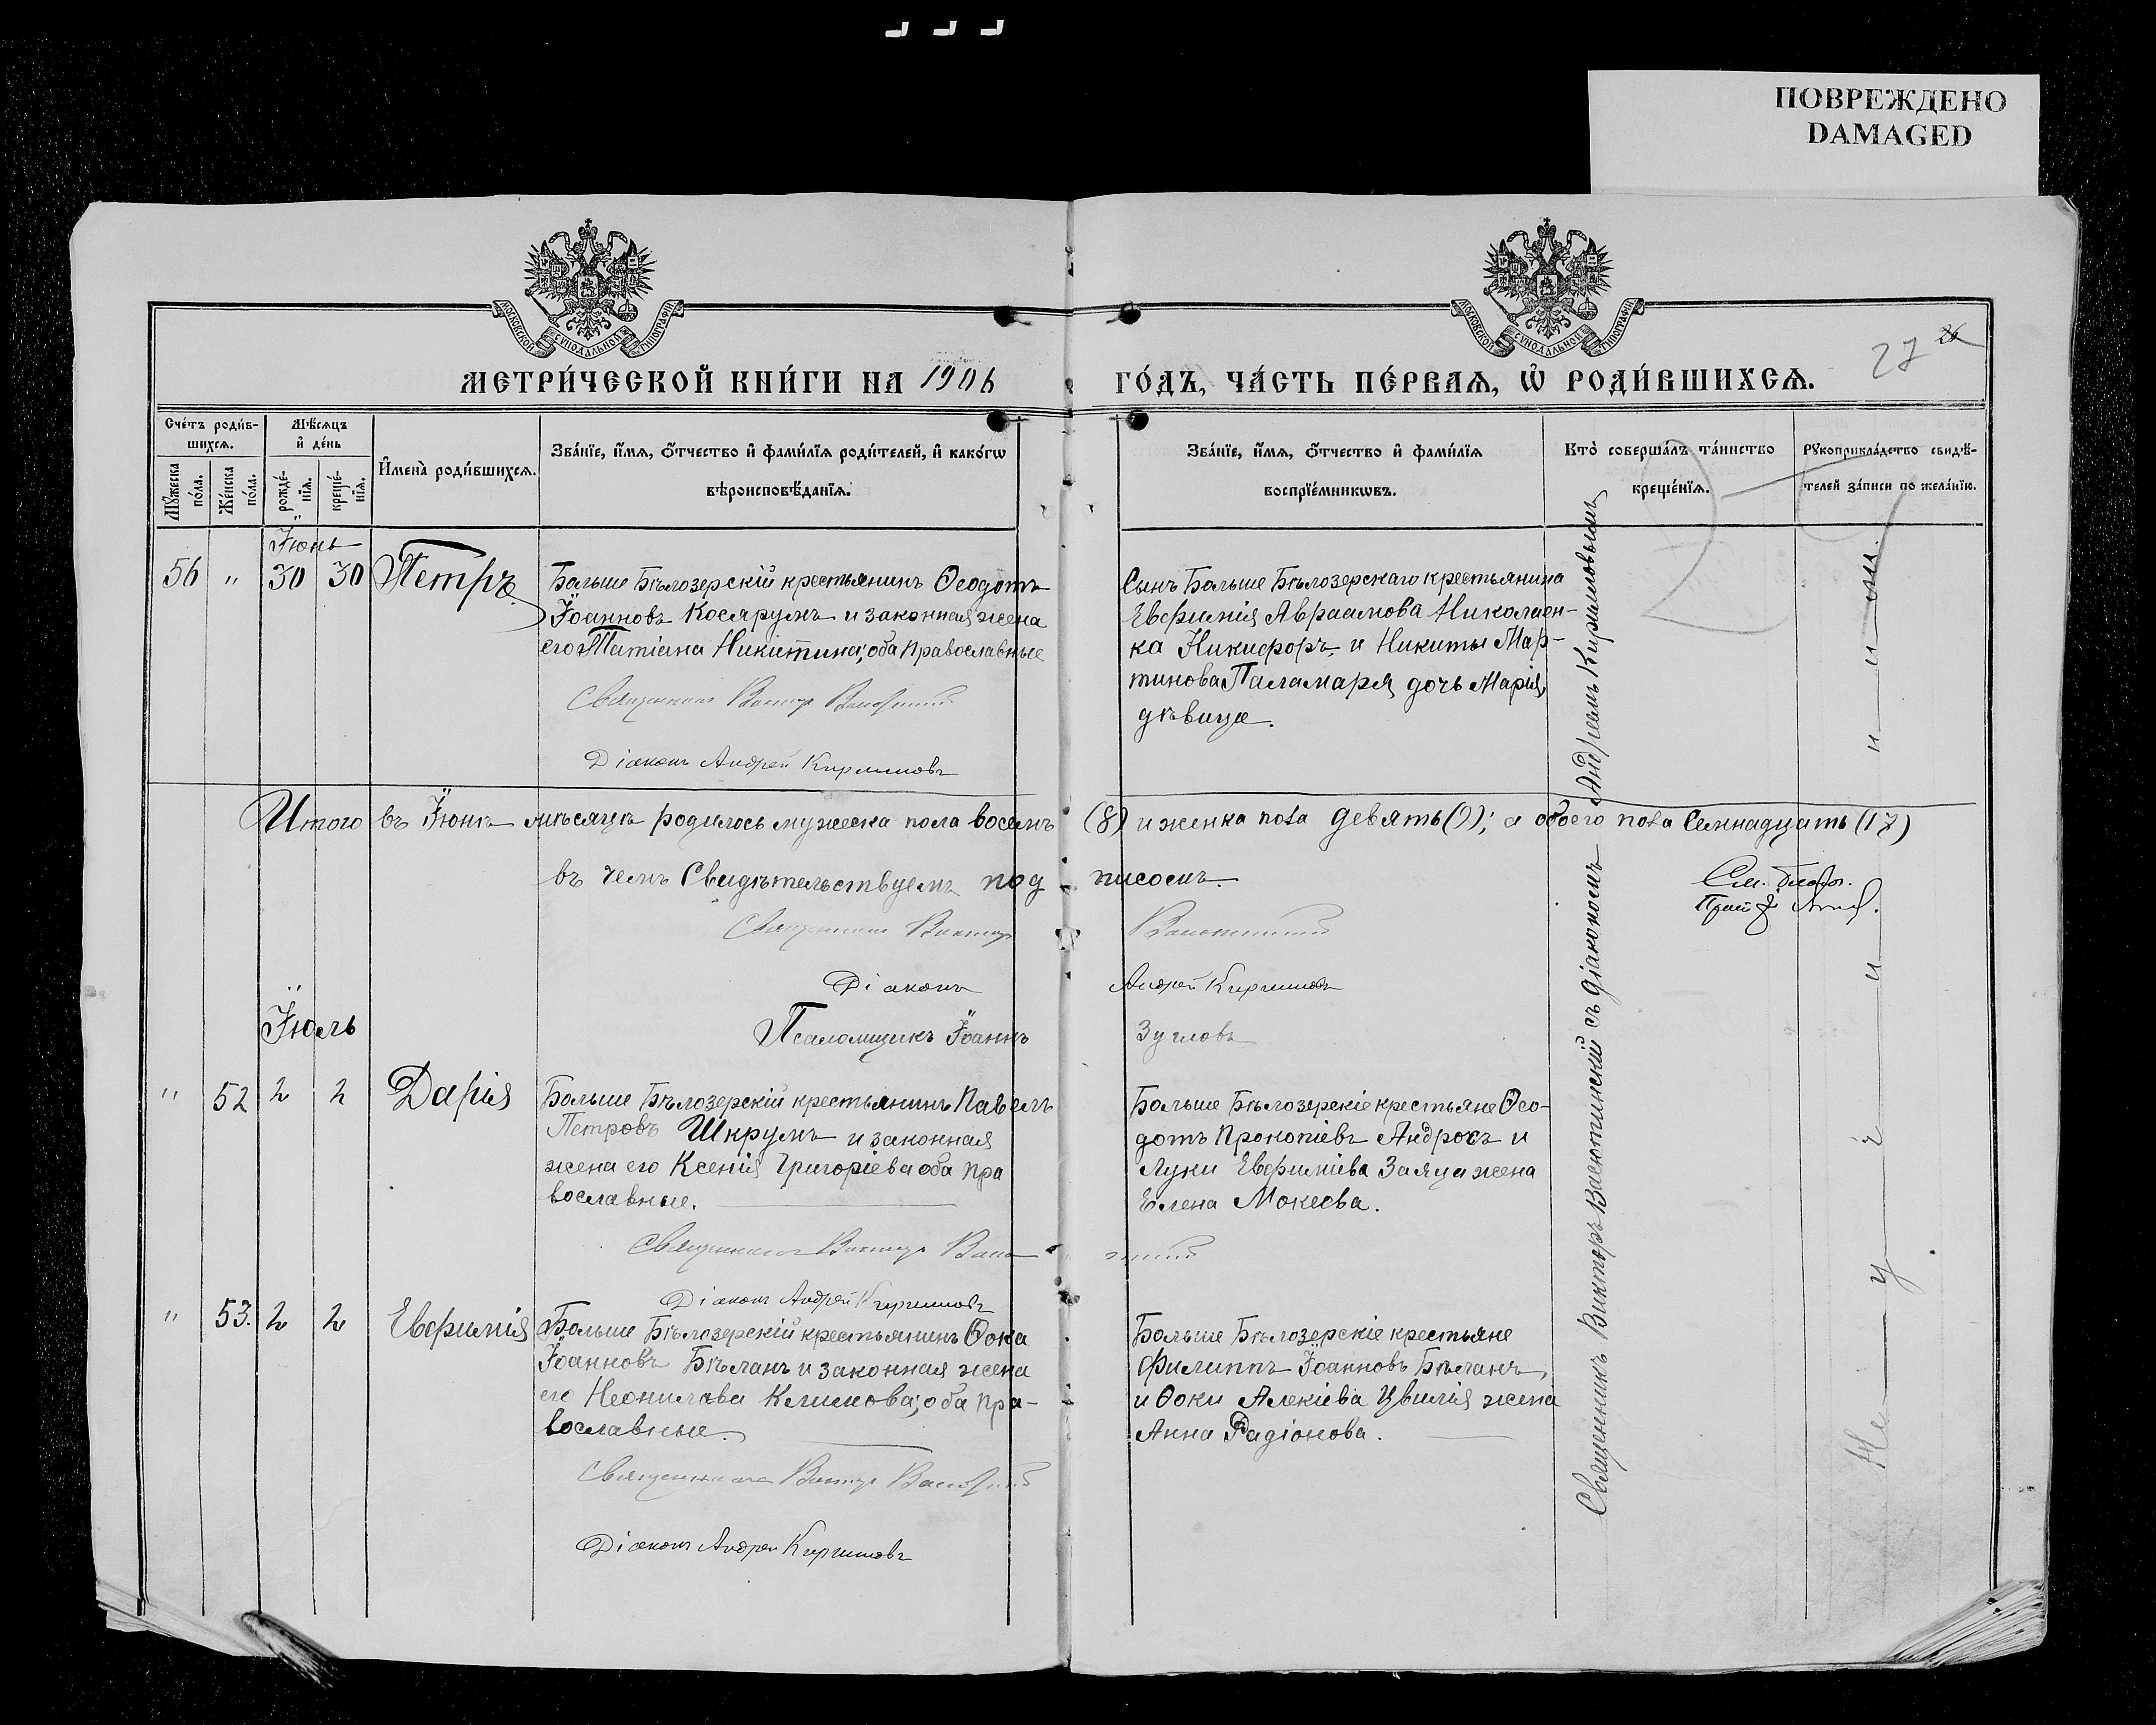 ПОВРЕЖДЕНО
DAMAGED
МОСКОВСКОЙ СѴНОДАЛЬНОЙ ТИПОГРАФІИ
МОСКОВСКОЙ СѴНОДАЛЬНОЙ ТИПОГРАФІИ
27 26
МЕТРИ́ЧЕСКОЙ КНИ́ГИ НА 1906 ГО́ДЪ, ЧА́СТЬ ПЕ́РВАѦ, Ѡ РОДИ́ВШИХСѦ.
Сче́тъ роди́в-
шихсѧ.
Мꙋжеска по́ла.
Же́нска по́ла.
Мѣ́сѧцъ
и҆ де́нь
рожде́-
нїѧ.
креще́-
нїѧ.
И҆мена̀ роди́вшихсѧ.
Зва́нїе, и҆́мѧ, ѻ҆́тчество и҆ фами́лїѧ роди́телей, и҆ како́гѡ
вѣроисповѣ́данїѧ.
Зва́нїе, и҆́мѧ, ѻ҆́тчество и҆ фами́лїѧ
воспрїе́мникѡвъ.
Кто̀ соверша́лъ та́инство
креще́нїѧ.
Рꙋкоприкла́дство свидѣ́-
телей за́писи по жела́нїю.
Іюнь
56 " 30 30 Петръ
Больше Бѣлозерскій крестьянинъ Ѳеодотъ
Іоанновъ Косярумъ и законная жена
его Татіана Никитина; оба Православные
Священникъ Викторъ
Діаконъ Андрей Кирилловъ
Сынъ Больше Бѣлозерскаго крестьянина
Евфимія Авраамова Николаен-
ка Никифоръ, и Никиты Мар-
тинова Паламаря дочь Марія,
дѣвица.
Итого въ Іюнѣ мѣсяцѣ родилось мужеска пола восемь (8) и женка пола девять (9); а обоего пола Семнадцать (17)
въ чемъ Свидѣтельствуемъ подписомъ.
Священникъ Викторъ
Діаконъ Андрей Кирилловъ
Псаломщикъ Іоаннъ Зугловъ
Іюль
" 52 2 2 Дарія
Больше Бѣлозерскій крестьянинъ Павелъ
Петровъ Шкрумъ и законная
жена его Ксенія Григоріева оба пра
вославные.
Священникъ Викторъ
Діаконъ Андрей Кирилловъ
Больше Бѣлозерскіе крестьяне Ѳео-
дотъ Прокопіевъ Андросъ и
Луки Евфиміева Заяца жена
Елена Мокеева.
" 53. 2 2 Евфимія
Больше Бѣлозерскій крестьянинъ Ѳока
Іоанновъ Бѣланъ и законная жена
его Неонилава Климова; оба пра-
вославные.
Священникъ Викторъ
Діаконъ Андрей Кирилловъ
Больше Бѣлозерскіе крестьяне
Филиппъ Іоанновъ Бѣланъ,
и Ѳоки Алекіева Цвилія жена
Анна Радіонова.
Священникъ Викторъ Васютинскій съ діакономъ Андреемъ Кирилловымъ